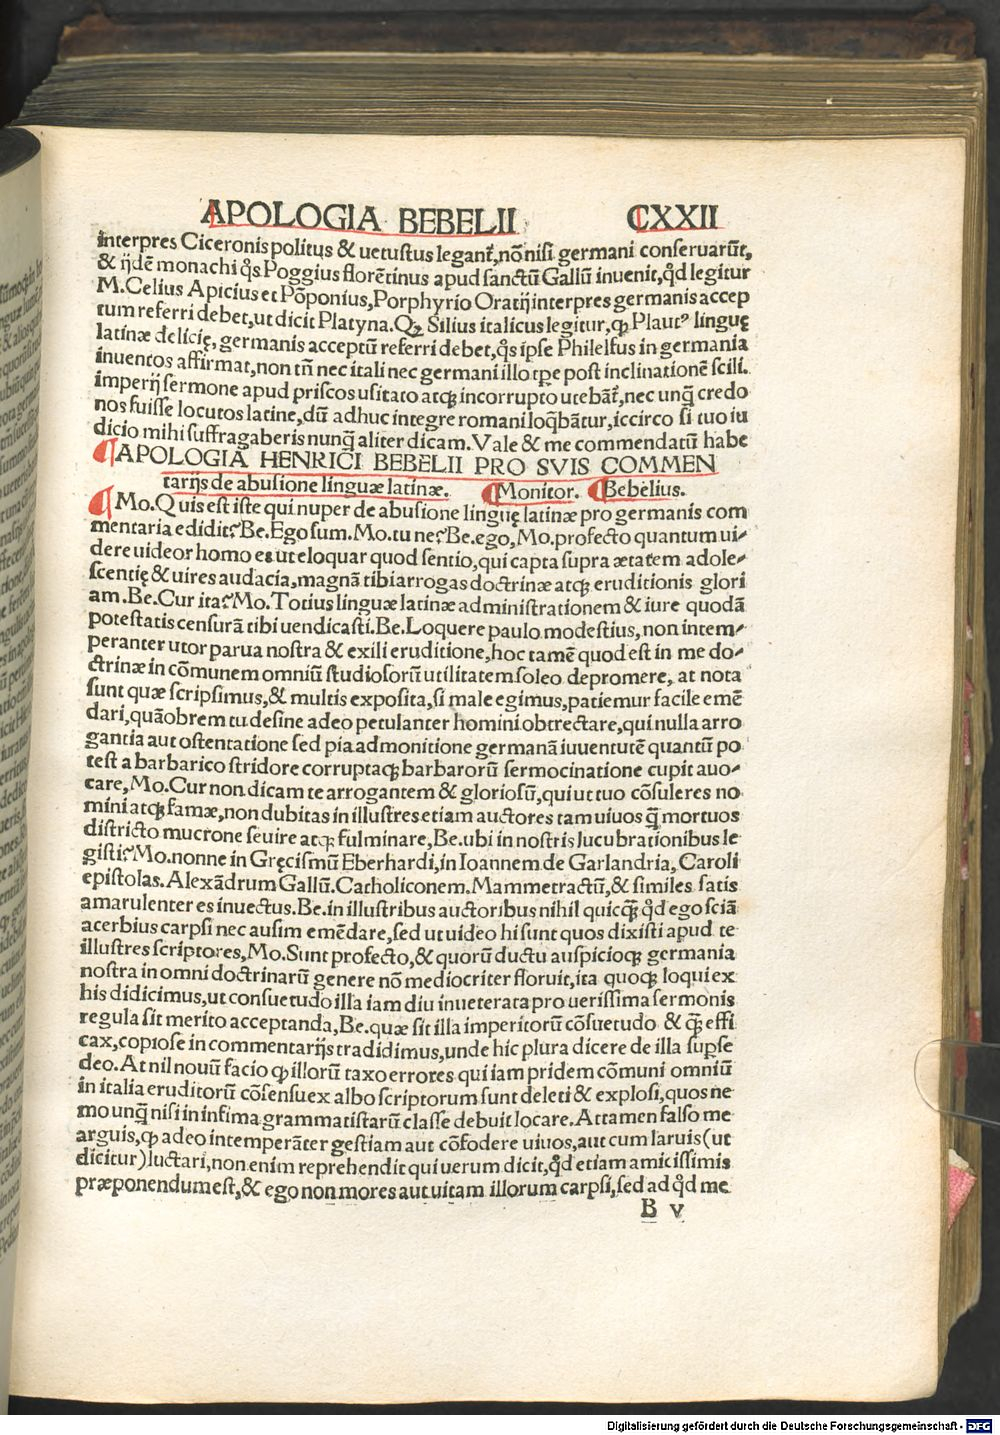 APOLOGIA BEBELII CXXII
interpres Ciceronis politus & uetustus legant̃, nõ nisi germani conseruarũt,
& ijdẽ monachi q̃s Poggius florẽtinus apud sanctũ Gallũ inuenit, q̃d legitur
M. Celius Apicius et Põponius, Porphyrio Oratij interpres germanis accep
tum referri debet, ut dicit Platyna. Qꝫ Silius italicus legitur, ꝙ Plautꝰ linguę
latinæ delicię, germanis acceptũ referri debet, q̃s ipse Philelfus in germania
inuentos affirmat, non tñ nec itali nec germani illo tꝑe post inclinationẽ scili.
imperij sermone apud priscos usitato atqꝫ incorrupto utebãt̃, nec unq̃ credo
nos fuisse locutos latine, dũ adhuc integre romani loq̃bãtur, iccirco si tuo iu
dicio mihi suffragaberis nunq̃ aliter dicam. Vale & me commendatũ habe
¶APOLOGIA HENRICI BEBELII PRO SVIS COMMEN
tarijs de abusione linguæ latinæ. ¶Monitor. ¶Bebelius.
¶Mo. Quis est iste qui nuper de abusione linguę latinæ pro germanis com
mentaria edidit? Be. Ego sum. Mo. tu ne? Be. ego, Mo. profecto quantum ui-
dere uideor homo es ut eloquar quod sentio, qui capta supra ætatem adole-
scentię & uires audacia, magnã tibi arrogas doctrinæ atqꝫ eruditionis glori
am. Be. Cur ita? Mo. Totius linguæ latinæ administrationem & iure quodã
potestatis censurã tibi uendicasti. Be. Loquere paulo modestius, non intem-
peranter utor parua nostra & exili eruditione, hoc tamẽ quod est in me do-
ctrinæ in cõmunem omniũ studiosorũ utilitatem soleo depromere, at nota
sunt quæ scripsimus, & multis exposita, si male egimus, patiemur facile emẽ
dari, quãobrem tu desine adeo petulanter homini obtrectare, qui nulla arro
gantia aut ostentatione sed pia admonitione germanã iuuentutẽ quantũ po
test a barbarico stridore corruptaqꝫ barbarorũ sermocinatione cupit auo-
care, Mo. Cur non dicam te arrogantem & gloriosũ, qui ut tuo cõsuleres no
mini atqꝫ famæ, non dubitas in illustres etiam auctores tam uiuos q̃ mortuos
districto mucrone seuire atqꝫ fulminare, Be. ubi in nostris lucubrationibus le
gisti? Mo. nonne in Gręcismũ Eberhardi, in Ioannem de Garlandria, Caroli
epistolas. Alexãdrum Gallũ. Catholiconem. Mammetractũ, & similes satis
amarulenter es inuectus. Be. in illustribus auctoribus nihil quicq̃ꝫ q̃d ego sciã
acerbius carpsi nec ausim emẽdare, sed ut uideo hi sunt quos dixisti apud te
illustres scriptores, Mo. Sunt profecto, & quorũ ductu auspicioqꝫ germania
nostra in omni doctrinarũ genere nõ mediocriter floruit, ita quoqꝫ loqui ex
his didicimus, ut consuetudo illa iam diu inueterata pro uerissima sermonis
regula sit merito acceptanda, Be. quæ sit illa imperitorũ cõsuetudo & q̃ꝫ effi
cax, copiose in commentarijs tradidimus, unde hic plura dicere de illa supse
deo. At nil nouũ facio ꝙ illorũ taxo errores qui iam pridem cõmuni omniũ
in italia eruditorũ cõsensu ex albo scriptorum sunt deleti & explosi, quos ne
mo unq̃ nisi in infima grammatistarũ classe debuit locare. Attamen falso me
arguis, ꝙ adeo intemperãter gestiam aut cõfodere uiuos, aut cum laruis (ut
dicitur) luctari, non enim reprehendit qui uerum dicit, q̃d etiam amicissimis
præponendum est, & ego non mores aut uitam illorum carpsi, sed ad q̃d me
B v
Digitalisierung gefördert durch die Deutsche Forschungsgemeinschaft - DFG